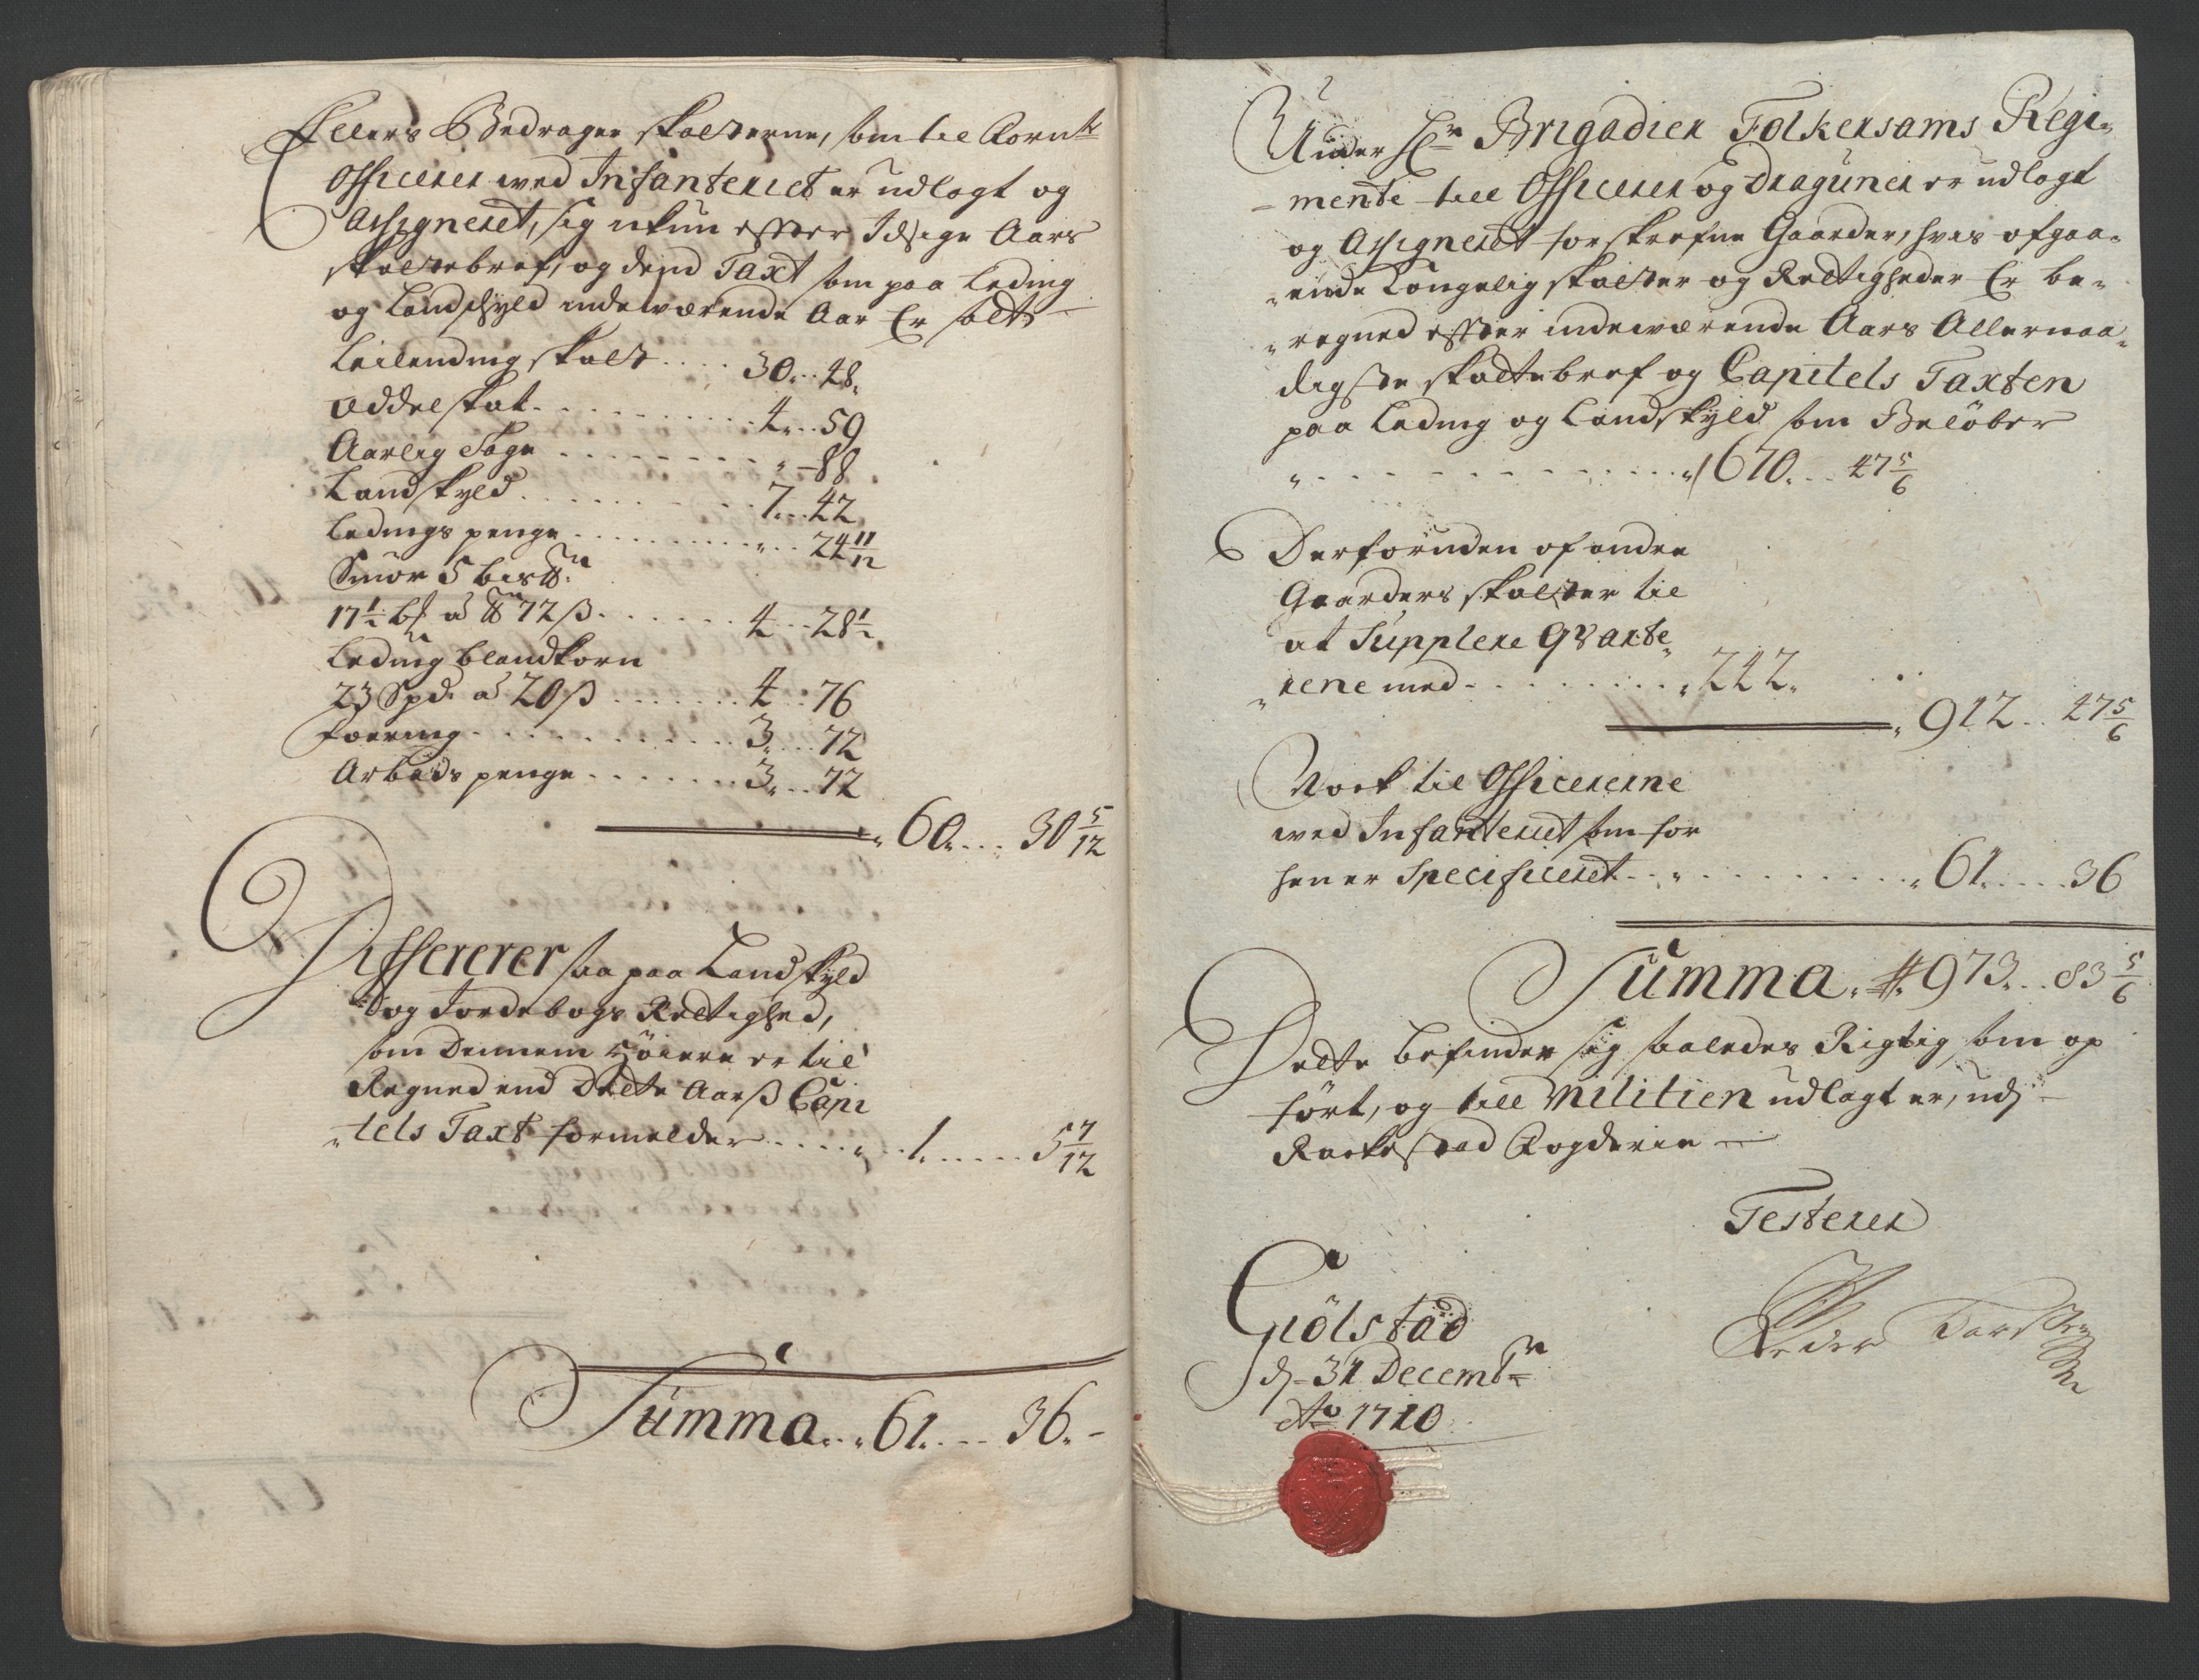 Ellers Bedrager skatterne, som til Forn:te
Officerer wed Infanteriet er udlagt og
Assigneret, sig ickun efter Idsige Aars
skattebref, og dend Taxt som paa Leding
og Landschyld indeværende Aar Er satt
Leilending skatt .... 30 .. 48
Oddelskat .......... 4 .. 59
Aarlig Sage ........ " - 88
Landskyld .......... 7 .. 42
Ledings penge ......... " .. 24 11/12
Smör 5 bis℔
17½ b℔ a ℔ 72 ß ...... 4 .. 28½
Leding blandkorn
23 Spd. a 20 ß ....... 4 .. 76
Foering ............ 3 .. 72
Arbeds penge ....... 3 .. 72
60 .... 30 5/12
Differerer saa paa Landskyld
og Jordebogs Rettighed,
som Dennem Höiere er til
Regned end Dette Aarß Capi
tels Taxt formelder ...... 1 ..... 5 7/12
Summa .. 61 .... 36
Under Hr Brigadier Folkersams Regi-
mente till Officerer og Draguner er udlagt
og Assigneret forskrefne Gaarder, hvis afgaa-
ende Kongelig skatter og Rettigheder Er be-
regned efter indeværende Aars Allernaa-
digste skattebref og Capitels Taxten
paa Leding og Landskyld som Belöber
" .............. 670 ... 47 5/6
Derforuden af andre
Gaarders skatter til
at Supplere Qvarte-
rene med ......... 242
912 .. 47 5/6
Nock til Officererne
wed Infanteriet som for
hen er Specificeret ........... 61 .... 36
Summa . 973 .. 83 5/6
Dette befinder sig saaledes Rigtig som op
fört, og till Militien udlagt er, udj
Rackestad Fogderie
Testerer
Giölstad
d. 31 Decembr
Ao 1710
Peder Torstensen